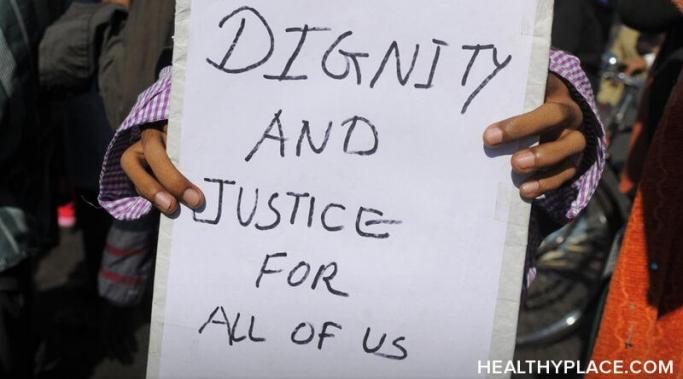 DIGNITY
AND
JUSTICE
FOR
ALL OF US
HEALTHYPLACE.COM